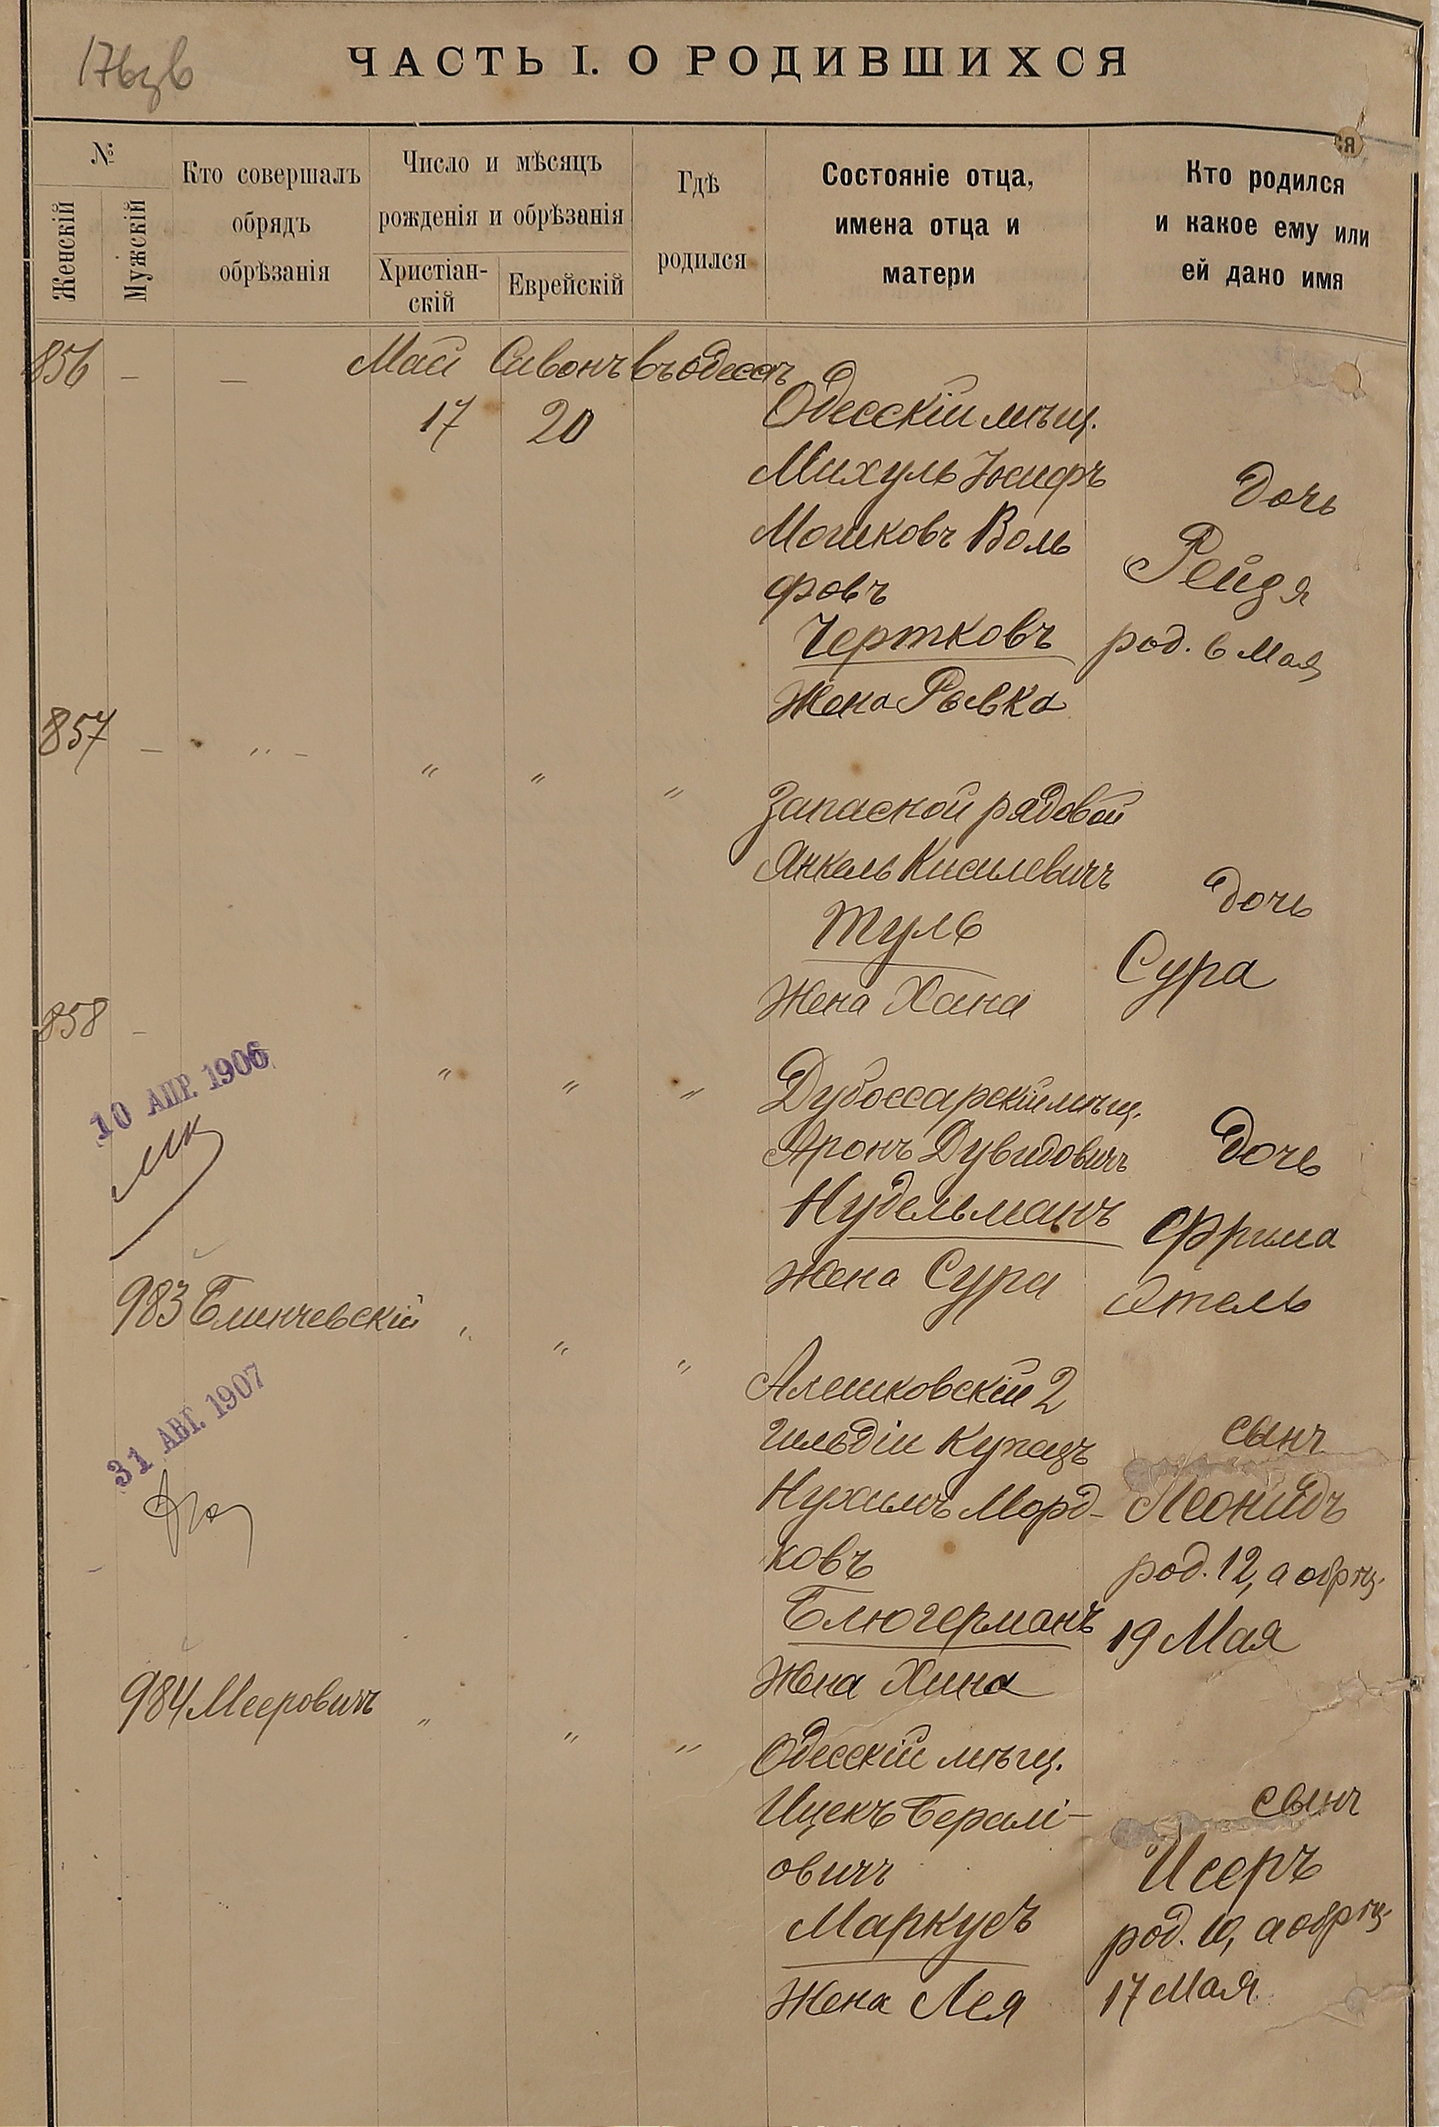 ЧАСТЬ I. О РОДИВШИХСЯ
№
Женскій
Мужскій
Кто совершалъ
обрядъ
обрѣзанія
Число и мѣсяцъ
рожденія и обрѣзанія
Христіан-
скій
Еврейскій
Гдѣ
родился
Состояніе отца,
имена отца и
матери
Кто родился
и какое ему или
ей дано имя
ся
856 — — Май Сивонъ въ Одессѣ
17 20
Одесскій мѣщ.
Михуль Іосифъ
Мошковъ Воль
фовъ
Чертковъ
Жена Рывка
дочь
Рейзя
род. 6 Мая
857 — „ — „ „ „
Запасной рядовой
Янкель Кисилевичъ
Туль
Жена Хана
дочь
Сура
858 — „ „ „
10 АПР. 1906
Дубоссарскій мѣщ.
Аронъ Дувидовичъ
Нудельманъ
Жена Сура
дочь
Фрима
Этель
983 Блинчевскій „ „ „
31 АВГ. 1907
Алешковскій 2
гильдіи купецъ
Нухимъ Морд-
ковъ
Блюгерманъ
Жена Хина
сынъ
Леонидъ
род. 12, а обрѣз.
19 Мая
984 Мееровичъ „ „ „
Одесскій мѣщ.
Ицекъ Берлі-
овичъ
Маркусъ
Жена Лея
сынъ
Исеръ
род. 10, а обрѣз.
17 Мая